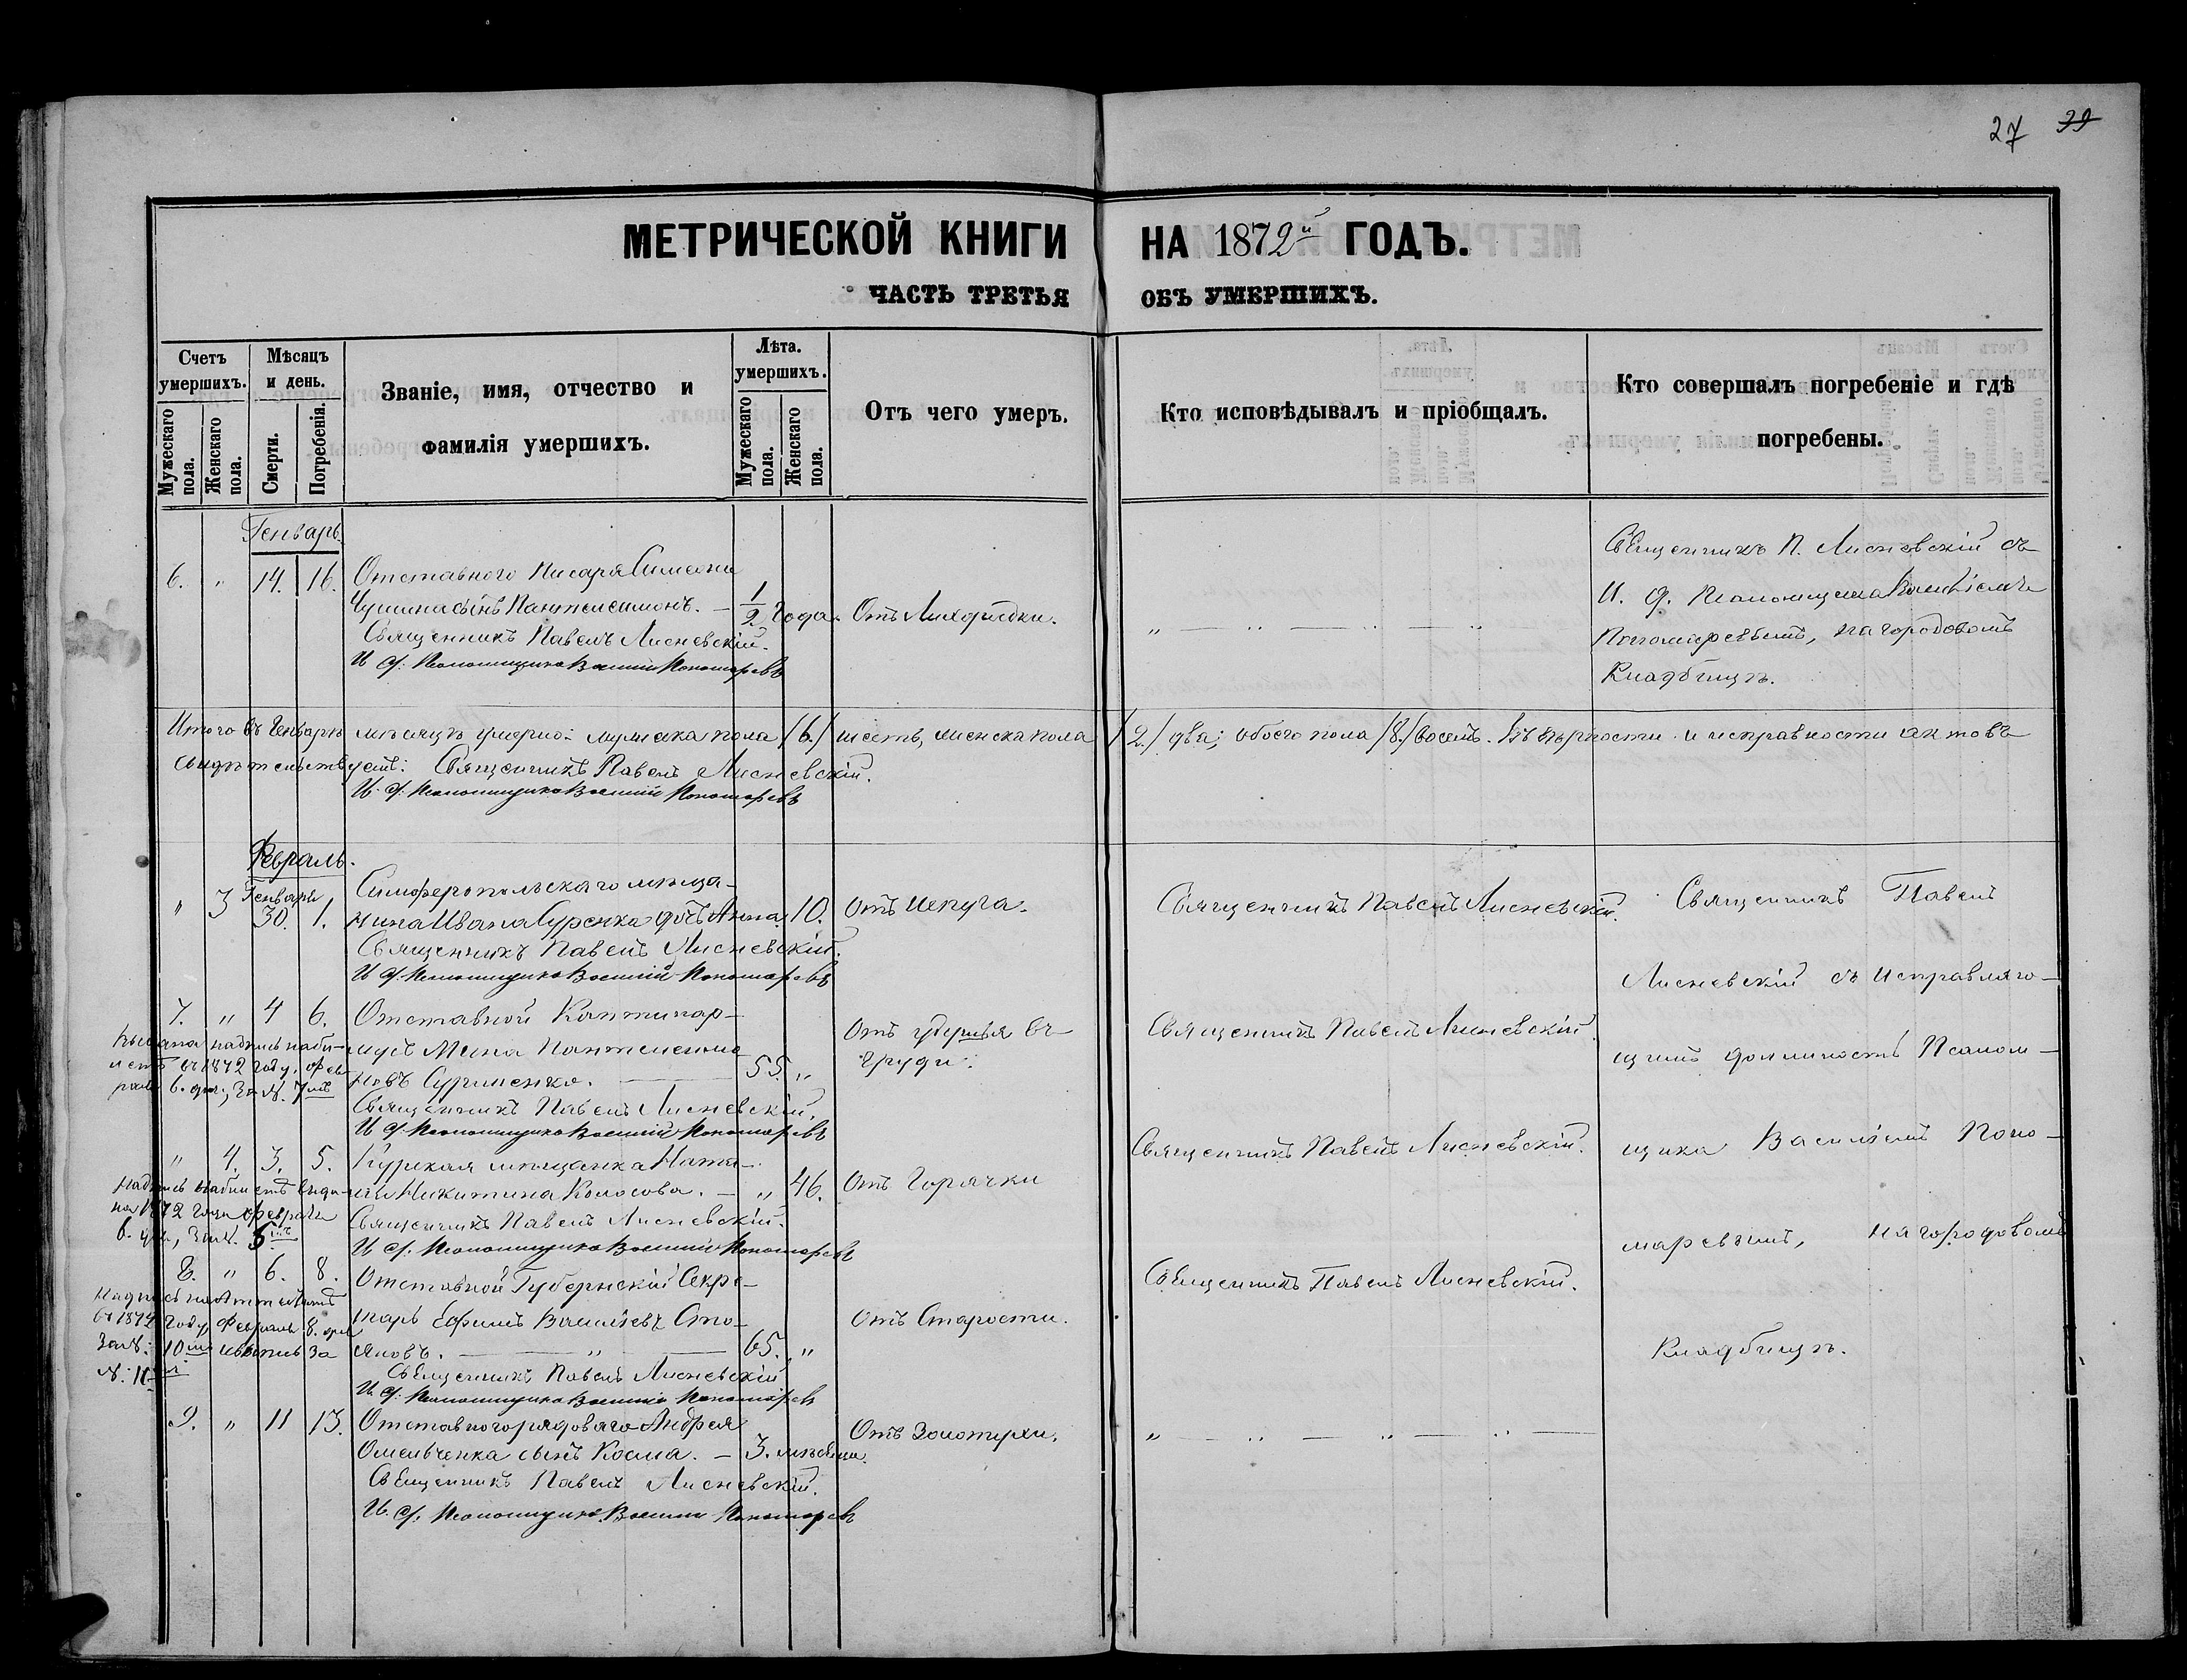 27 39
МЕТРИЧЕСКОЙ КНИГИ НА 1872й ГОДЪ.
ЧАСТЬ ТРЕТЬЯ ОБЪ УМЕРШИХЪ.
Счетъ умершихъ.
Мужескаго пола.
Женскаго пола.
Мѣсяцъ и день.
Смерти.
Погребенія.
Званіе, имя, отчество и
фамилія умершихъ.
Лѣта. умершихъ.
Мужескаго пола.
Женскаго пола.
Отъ чего умеръ.
Кто исповѣдывалъ и пріобщалъ.
Кто совершалъ погребеніе и гдѣ
погребены.
Генварь.
6. " 14. 16. Отставного Писаря Симеона
сынъ Пантелеимонъ. — 1/2 года. Отъ Лихорадки.
Священникъ Павелъ Лисневскій.
И. д. Псаломщика Василій Пономаревъ
" — " — " — "
Священникъ П. Лисневскій съ
И. д. Псаломщика Василіемъ
Пономаревымъ, на городовомъ
Кладбищѣ.
Итого въ Генварѣ мѣсяцѣ умерло: мужеска пола /6./ шесть, женска пола /2./ два; обоего пола /8./ восемь. Въ вѣрности и исправности актовъ
свидѣтельствуемъ: Священникъ Павелъ Лисневскій.
И. д. Псаломщика Василій Пономаревъ
Февраль.
" 3 Генваря 30. 1. Симферопольскаго мѣща-
нина Ивана Суренка дочь Анна. 10. Отъ Испуга.
Священникъ Павелъ Лисневскій.
И. д. Псаломщика Василій Пономаревъ
Священникъ Павелъ Лисневскій.
7. " 4 6. Отставной Кантенар-
мусъ Мина Пантелеимо-
новъ Суржиенко. — 55. "
Отъ удушья въ
груди.
Священникъ Павелъ Лисневскій.
И. д. Псаломщика Василій Пономаревъ
Священникъ Павелъ Лисневскій.
Выдана надпись на би-
летѣ въ 1872 году, фев
раля 6. дня, за №. 7мъ
" 4. 3. 5. Курская мѣщанка Ната-
лія Никитина Колосова. — " 46. Отъ Горячки
Священникъ Павелъ Лисневскій.
И. д. Псаломщика Василій Пономаревъ
Священникъ Павелъ Лисневскій.
Надпись на билетѣ выда-
на 1872 года февраля
6. дня, за №.
8. " 6. 8. Отставной Губернскій Секре-
тарь Ефимъ Васильевъ Сто-
яновъ. — " — 65. " Отъ Старости.
Священникъ Павелъ Лисневскій
И. д. Псаломщика Василій Пономаревъ
Священникъ Павелъ Лисневскій.
Надпись на Аттестатѣ
въ 1872 году, Февраля 8. дня
за №: 10мъ за
№. 11мъ
9. " 11 13. Отставного рядоваго Андрея
Омельченка сынъ Косма. — 3. мѣсяца. Отъ Золотухи.
Священникъ Павелъ Лисневскій.
И. д. Псаломщика Василій Пономаревъ
" — " — " — " —
Священникъ Павелъ
Лисневскій съ исправляю-
щимъ должность Псалом-
щика Василіемъ Поно-
маревымъ, на городовомъ
Кладбищѣ.